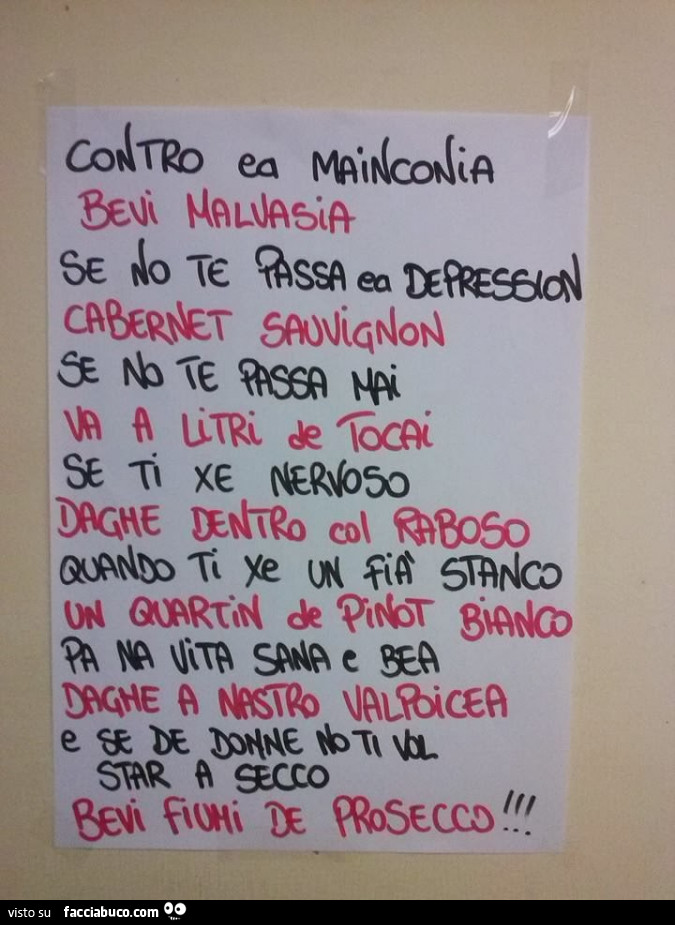 CONTRO ea MAINCONIA
BEVI MALVASIA
SE NO TE PASSA ea DEPRESSION
CABERNET SAUVIGNON
SE NO TE PASSA MAI
VA A LITRI de TOCAI
SE TI XE NERVOSO
DAGHE DENTRO col RABOSO
QUANDO Ti Xe UN FIA' STANCO
UN QUARTIN de PINOT BIANCO
PA NA VITA SANA e BEA
DAGHE A NASTRO VALPOICEA
e SE DE DONNE NO TI VOL
STAR A SECCO
BEVI FIUMI DE PROSECCO!!!
visto su facciabuco.com